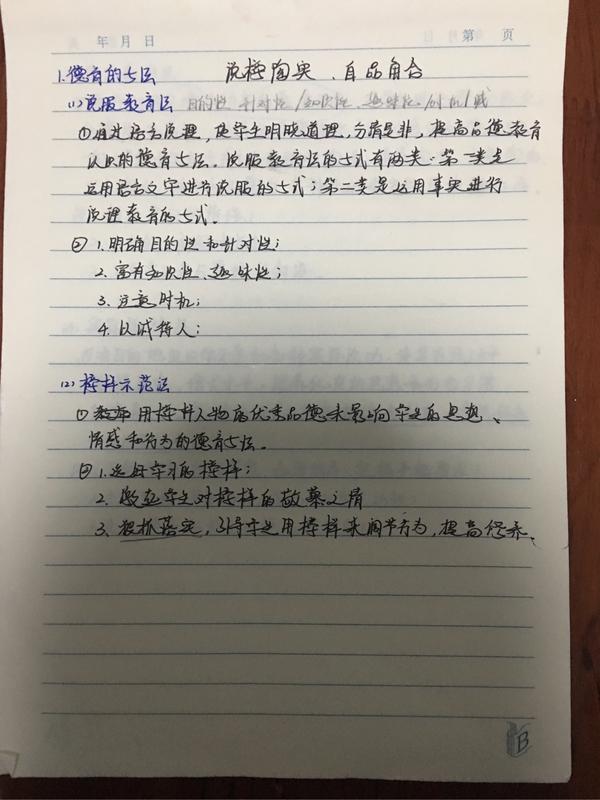 年 月 日 第 页
1.德育的方法 说榜陶实、自品角合
(1)说服教育法 目的性 针对性/知识性、趣味性/时机/诚
①通过语言说理,使学生明晓道理,分清是非,提高品德教育
认识的德育方法.说服教育法的方式有两类.第一类是
运用语言文字进行说服的方式;第二类是运用事实进行
说理教育的方式.
② 1.明确目的性和针对性;
2.富有知识性、趣味性;
3.注意时机;
4.以诚待人;
(2)榜样示范法
①教师用榜样人物的优秀品德来影响学生的思想、
情感和行为的德育方法.
② 1.选好学习的榜样;
2.激起学生对榜样的敬慕之情
3.狠抓落实,引导学生用榜样来调节行为,提高修养.
B